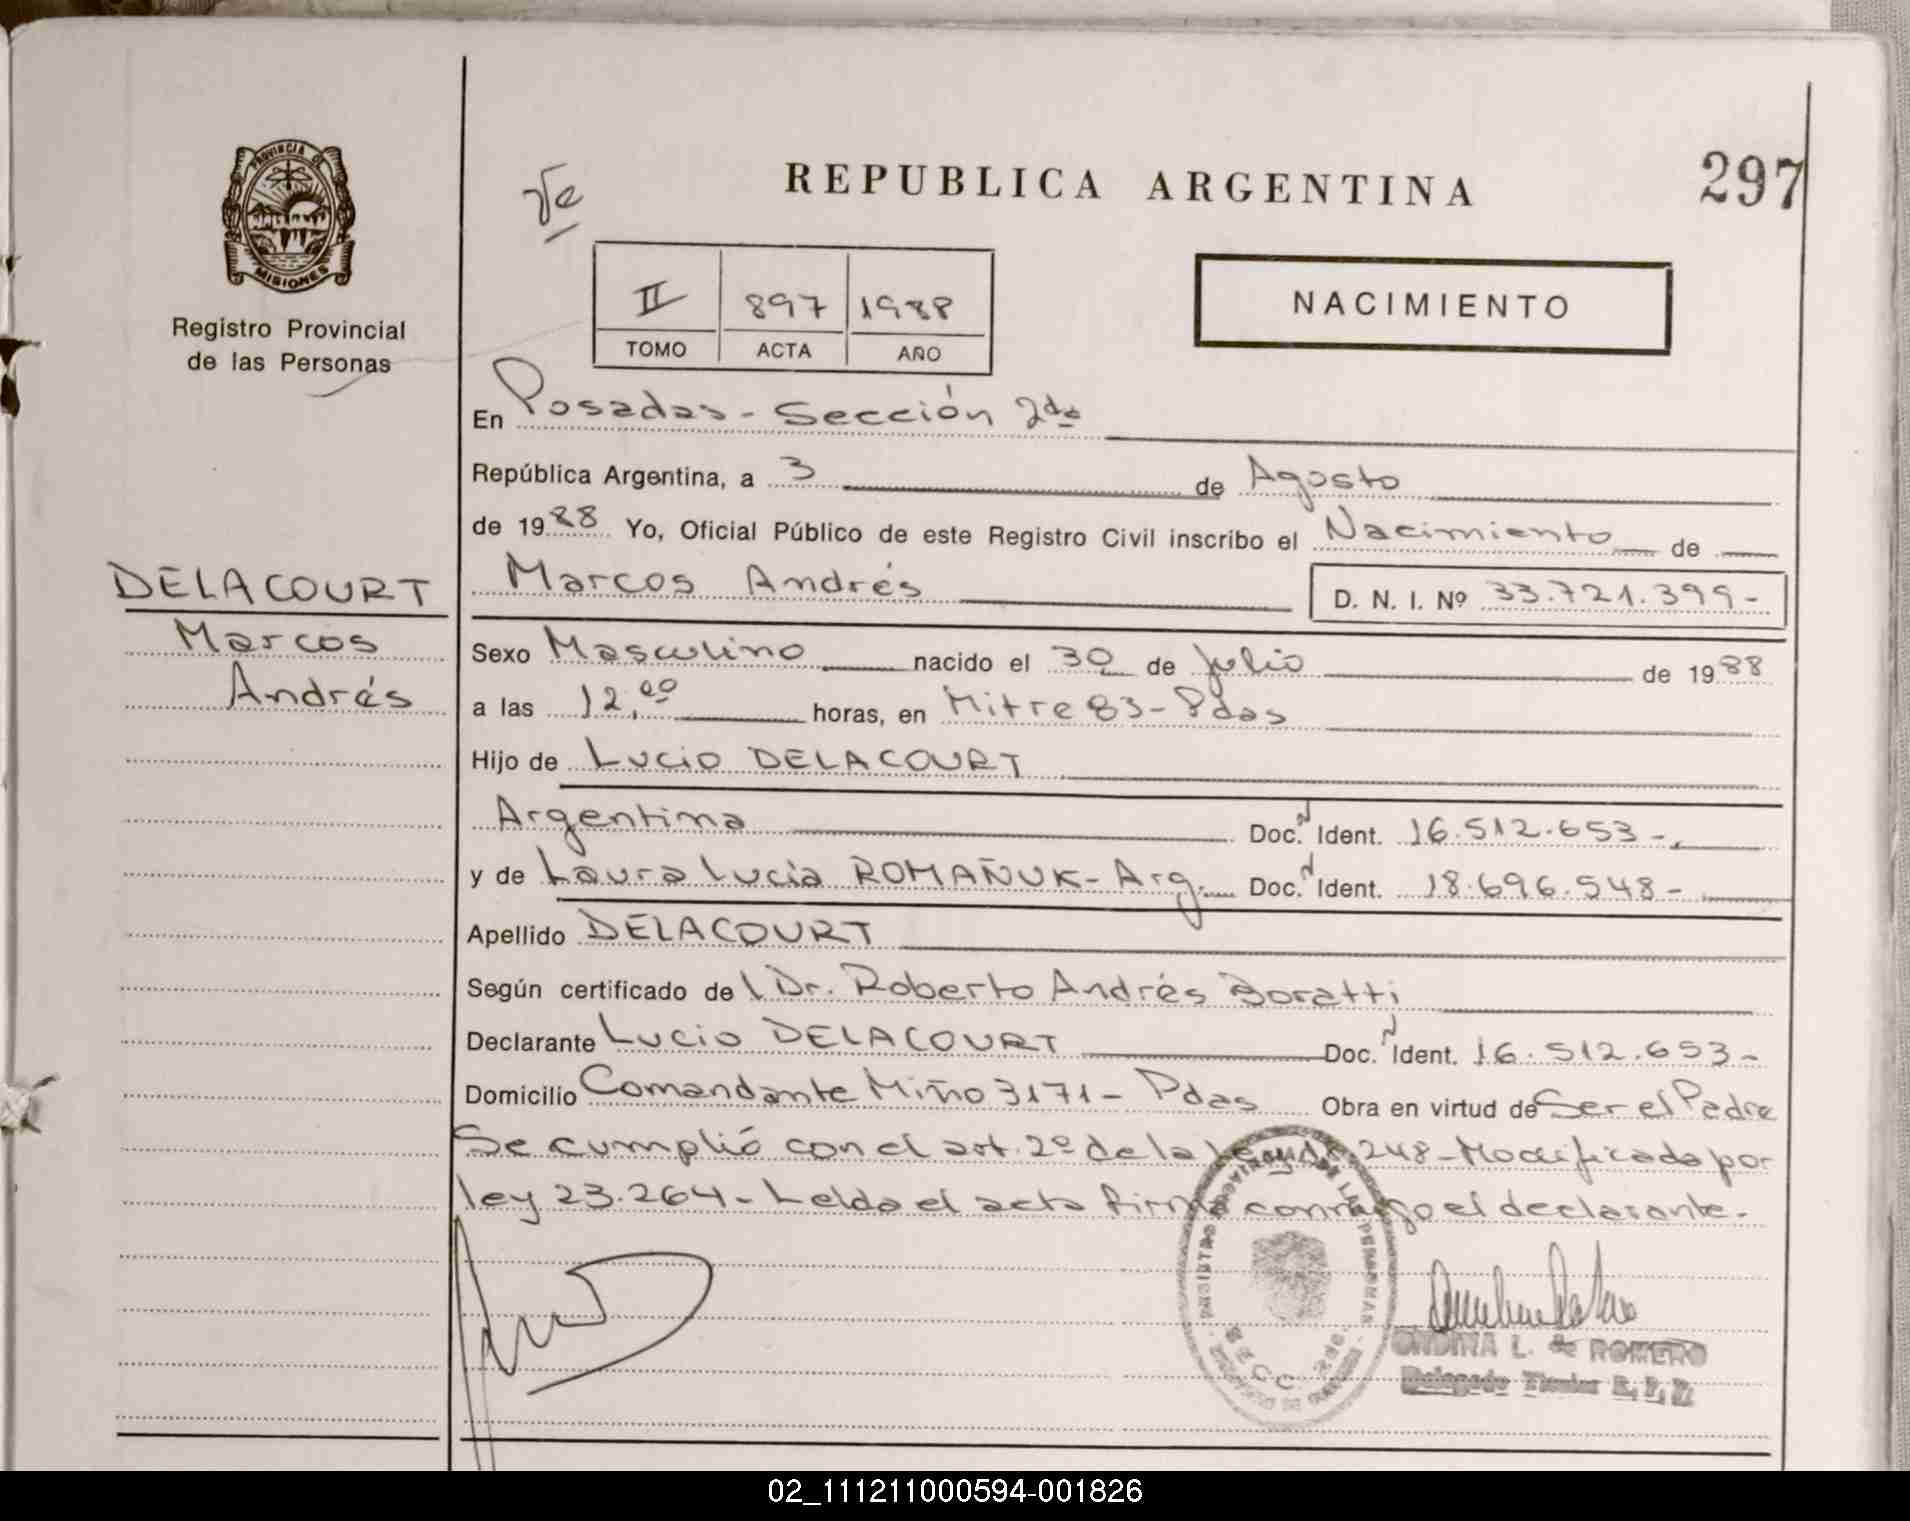 PROVINCIA DE
MISIONES
Registro Provincial
de las Personas
REPUBLICA ARGENTINA
297
II 897 1988
TOMO ACTA AÑO
NACIMIENTO
En Posadas - Sección 2da
República Argentina, a 3 de Agosto
de 1988 Yo, Oficial Público de este Registro Civil inscribo el Nacimiento de
DELACOURT
Marcos
Andrés
Marcos Andrés D. N. I. Nº 33.721.399-
Sexo Masculino nacido el 30 de Julio de 1988
a las 12,00 horas, en Mitre 83 - Pdas
Hijo de Lucio DELACOURT
Argentina Doc. Ident. 16.512.653-
y de Laura Lucia ROMAÑUK - Arg. Doc. Ident. 18.696.548-
Apellido DELACOURT
Según certificado del Dr. Roberto Andrés Boratti
Declarante Lucio DELACOURT Doc. Ident. 16.512.653-
Domicilio Comandante Miño 3171 - Pdas Obra en virtud de Ser el Padre
Se cumplió con el art. 2º de la Ley 18.248 - Modificada por
ley 23.264 - Leída el acta firma conmigo el declarante.
SECC. 2da.
ONDINA L. de ROMERO
Delegado Titular R. P. P.
02_111211000594-001826